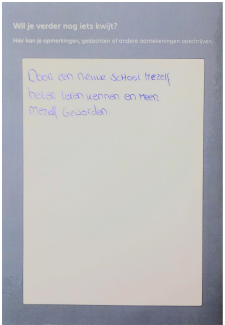 Wil je verder nog iets kwijt?
Hier kan je opmerkingen, gedachten of andere aantekeningen opschrijven.
Door een nieuwe school mezelf
beter leren kennen en meer
mezelf geworden